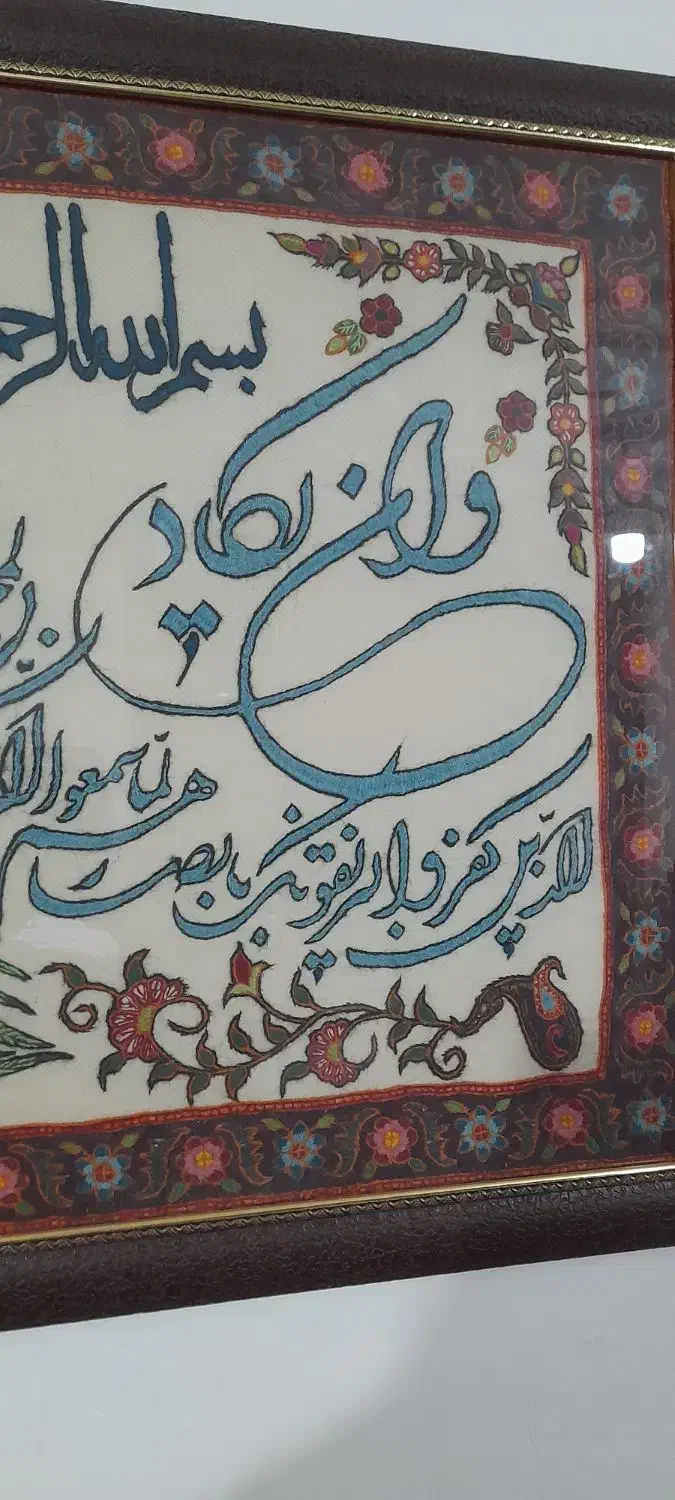 بسم الله الرحم
وان یکاد
الذین کفروا لیزلقونک بابصارهم
لما سمعوا الذ